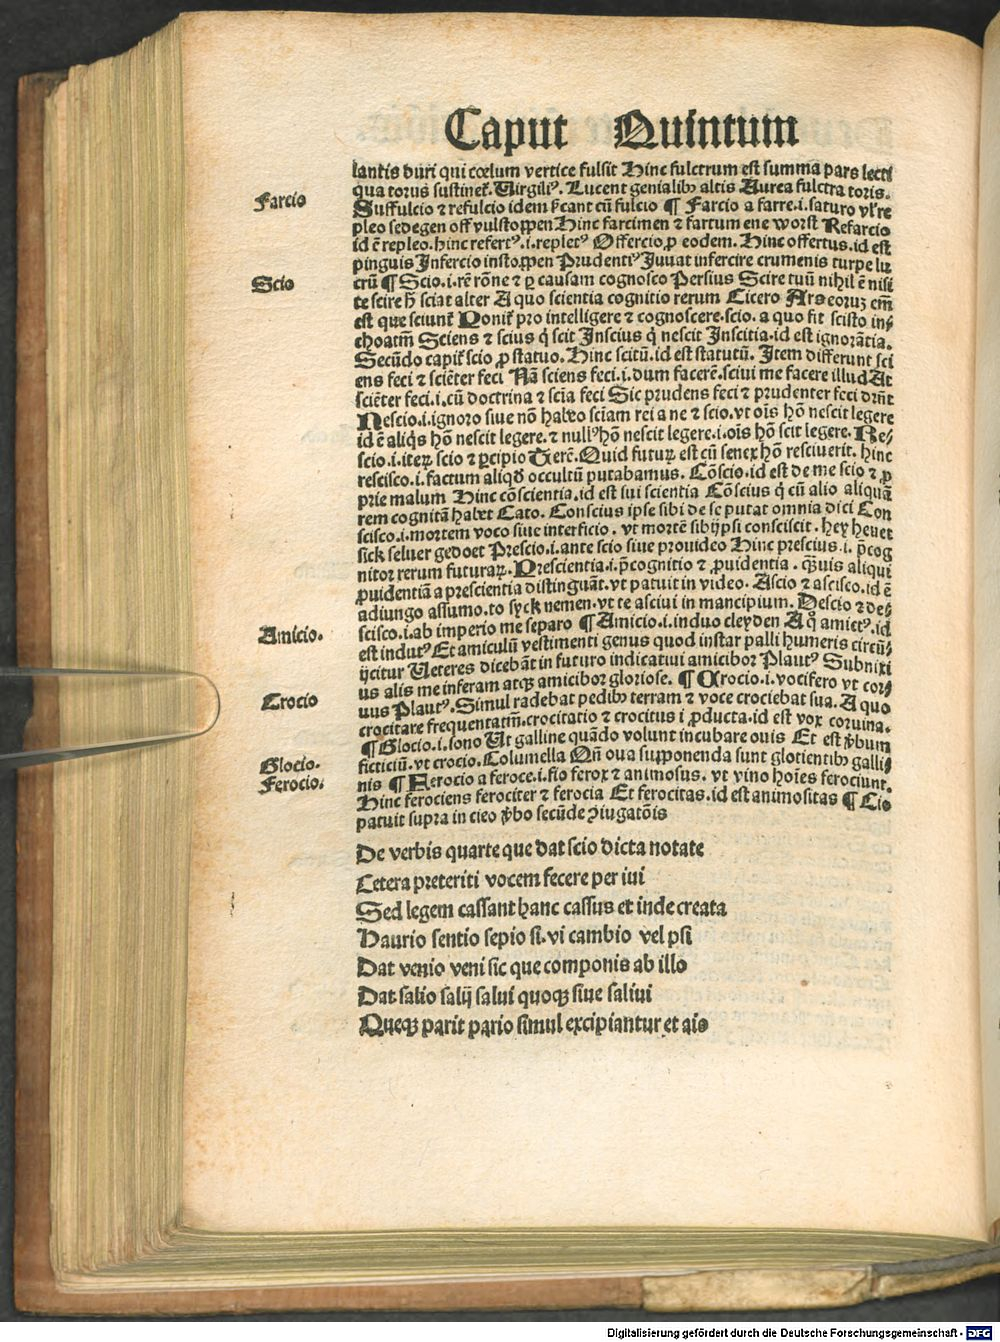 Caput Quintum
lantis duri qui cœlum vertice fulsit Hinc fulctrum est summa pars lecti
qua torus sustinet̄. Virgiliꝰ. Lucent genialibꝫ altis Aurea fulctra toris.
Farcio
Suffulcio ⁊ refulcio idem sc̄ant cū fulcio ¶ Farcio a farre .i. saturo vl' re
pleo sedegen off vulstoppen Hinc farcimen ⁊ fartum ene worst Refarcio
id ē repleo. hinc refertꝰ .i. repletꝰ Offercio ꝓ eodem. Hinc offertus .id est
pinguis Infercio instoppen Prudentiꝰ Juuat infercire crumenis turpe lu
Scio
crū ¶ Scio .i. rē rōne ⁊ ꝑ causam cognosco Persius Scire tuū nihil ē nisi
te scire h̄ sciat alter A quo scientia cognitio rerum Cicero Ars eorum em̄
est que sciunt̄ Ponit̄ pro intelligere ⁊ cognoscere .scio. a quo fit scisto in/
choatm̄ Sciens ⁊ scius q̇ scit Inscius q̇ nescit Inscitia .id est ignorātia.
Secūdo capit̄ scio ꝓ statuo. Hinc scitū .id est statutū. Item differunt sci
ens feci ⁊ sciēter feci Nā sciens feci .i. dum facerē .sciui me facere illud At
sciēter feci .i. cū doctrina ⁊ scīa feci Sic prudens feci ⁊ prudenter feci dr̄nt
Nescio .i. ignoro siue nō habeo sciam rei a ne ⁊ scio. vt oīs hō nescit legere
id ē aliq̇s hō nescit legere. ⁊ nullꝰ hō nescit legere .i. oīs hō scit legere. Re/
scio .i. iteꝝ scio ⁊ ꝑcipio Terē. Quid futuꝝ est cū senex hō resciuerit. hinc
rescisco .i. factum aliqd̄ occultū putabamus. Cōscio .id est de me scio ⁊ ꝓ
prie malum Hinc cōscientia .id est sui scientia Cōscius q̇ cū alio aliquā
rem cognitā habet Cato. Conscius ipse sibi de se putat omnia dici Con
scisco .i. mortem voco siue interficio. vt mortē sibijpsi consciscit. hey heuet
sick seluer gedoet Prescio .i. ante scio siue prouideo Hinc prescius .i. p̄cog
nitor rerum futuraꝝ. Prescientia .i. p̄cognitio ⁊ ꝓuidentia. q̄uis aliqui
ꝓuidentiā a prescientia distinguāt. vt patuit in video. Ascio ⁊ ascisco .id ē
adiungo assumo. to syck nemen. vt te asciui in mancipium. Descio ⁊ de/
Amicio.
scisco .i. ab imperio me separo ¶ Amicio .i. induo cleyden A q̊ amictꝰ .id
est indutꝰ Et amiculū vestimenti genus quod instar palli humeris circū/
ijcitur Veteres dicebāt in futuro indicatiui amicibor Plautꝰ Subnixi
us alis me inferam atqꝫ amicibor gloriose. ¶ Crocio .i. vocifero vt cor/
Crocio
uus Plautꝰ. Simul radebat pedibꝫ terram ⁊ voce crociebat sua. A quo
crocitare frequentatm̄. crocitatio ⁊ crocitus i ꝓducta .id est vox coruina.
¶ Glocio .i. sono Ut galline quādo volunt incubare ouis Et est v̄bum
Glocio.
ficticiū. vt crocio. Columella Qn̄ oua supponenda sunt glotientibꝫ galli/
Ferocio.
nis ¶ Ferocio a feroce .i. fio ferox ⁊ animosus. vt vino hoīes ferociunt.
Hinc ferociens ferociter ⁊ ferocia Et ferocitas .id est animositas ¶ Cio
patuit supra in cieo v̄bo secūde ꝯiugatōis
De verbis quarte que dat scio dicta notate
Cetera preteriti vocem fecere per iui
Sed legem cassant hanc cassus et inde creata
Haurio sentio sepio si. vi cambio vel psi
Dat venio veni sic que componis ab illo
Dat salio salij salui quoqꝫ siue saliui
Queqꝫ parit pario simul excipiantur et aio
Digitalisierung gefördert durch die Deutsche Forschungsgemeinschaft - DFG